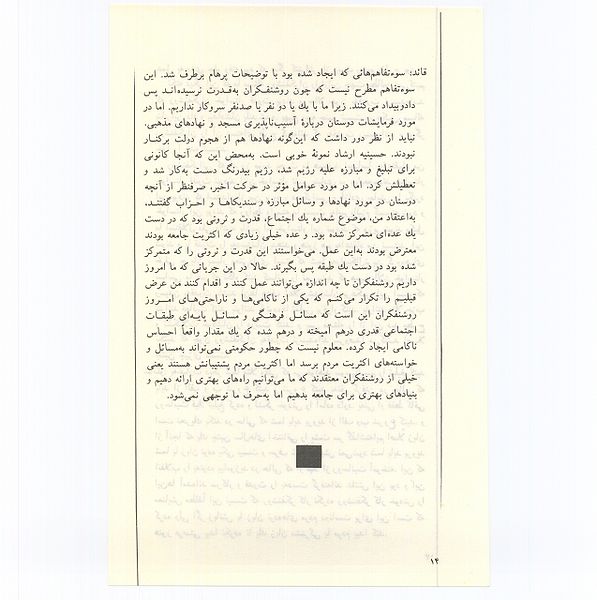 قائد: سوءتفاهم‌هائی که ایجاد شده بود با توضیحات پرهام برطرف شد. این
سوءتفاهم مطرح نیست که چون روشنفکران به‌قدرت نرسیده‌اند پس
دادوبیداد می‌کنند. زیرا ما با یك یا دو نفر یا صدنفر سروکار نداریم. اما در
مورد فرمایشات دوستان دربارهٔ آسیب‌ناپذیری مسجد و نهادهای مذهبی،
نباید از نظر دور داشت که این‌گونه نهادها هم از هجوم دولت برکنار
نبودند. حسینیه ارشاد نمونهٔ خوبی است. به‌محض این که آنجا کانونی
برای تبلیغ و مبارزه علیه رژیم شد، رژیم بیدرنگ دست به‌کار شد و
تعطیلش کرد. اما در مورد عوامل مؤثر در حرکت اخیر، صرفنظر از آنچه
دوستان در مورد نهادها و وسائل مبارزه و سندیکاها و احزاب گفتند،
به‌اعتقاد من، موضوع شماره یك اجتماع، قدرت و ثروتی بود که در دست
یك عده‌ای متمرکز شده بود. و عده خیلی زیادی که اکثریت جامعه بودند
معترض بودند به‌این عمل. می‌خواستند این قدرت و ثروتی را که متمرکز
شده بود در دست یك طبقه پس بگیرند. حالا در این جریانی که ما امروز
داریم روشنفکران تا چه اندازه می‌توانند عمل کنند و اقدام کنند من عرض
قبلیم را تکرار می‌کنم که یکی از ناکامی‌ها و ناراحتی‌های امروز
روشنفکران این است که مسائل فرهنگی و مسائل پایه‌ای طبقات
اجتماعی قدری درهم آمیخته و درهم شده که یك مقدار واقعاً احساس
ناکامی ایجاد کرده. معلوم نیست که چطور حکومتی نمی‌تواند به‌مسائل و
خواسته‌های اکثریت مردم برسد اما اکثریت مردم پشتیبانش هستند یعنی
خیلی از روشنفکران معتقدند که ما می‌توانیم راه‌های بهتری ارائه دهیم و
بنیادهای بهتری برای جامعه بدهیم اما به‌حرف ما توجهی نمی‌شود.
۱۴